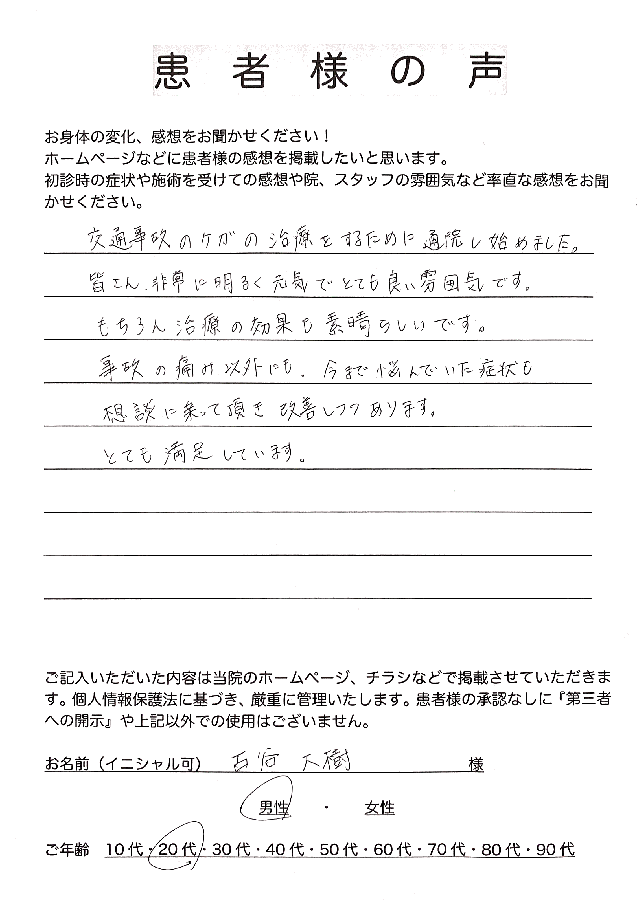 患者様の声
お身体の変化、感想をお聞かせください！
ホームページなどに患者様の感想を掲載したいと思います。
初診時の症状や施術を受けての感想や院、スタッフの雰囲気など率直な感想をお聞
かせください。
交通事故のケガの治療をするために通院し始めました。
皆さん、非常に明るく元気でとても良い雰囲気です。
もちろん治療の効果も素晴らしいです。
事故の痛み以外にも、今まで悩んでいた症状も
相談に乗って頂き改善しつつあります。
とても満足しています。
ご記入いただいた内容は当院のホームページ、チラシなどで掲載させていただきま
す。個人情報保護法に基づき、厳重に管理いたします。患者様の承認なしに『第三者
への開示』や上記以外での使用はございません。
お名前（イニシャル可） 古谷 大樹 様
男性 ・ 女性
ご年齢 10代・20代・30代・40代・50代・60代・70代・80代・90代